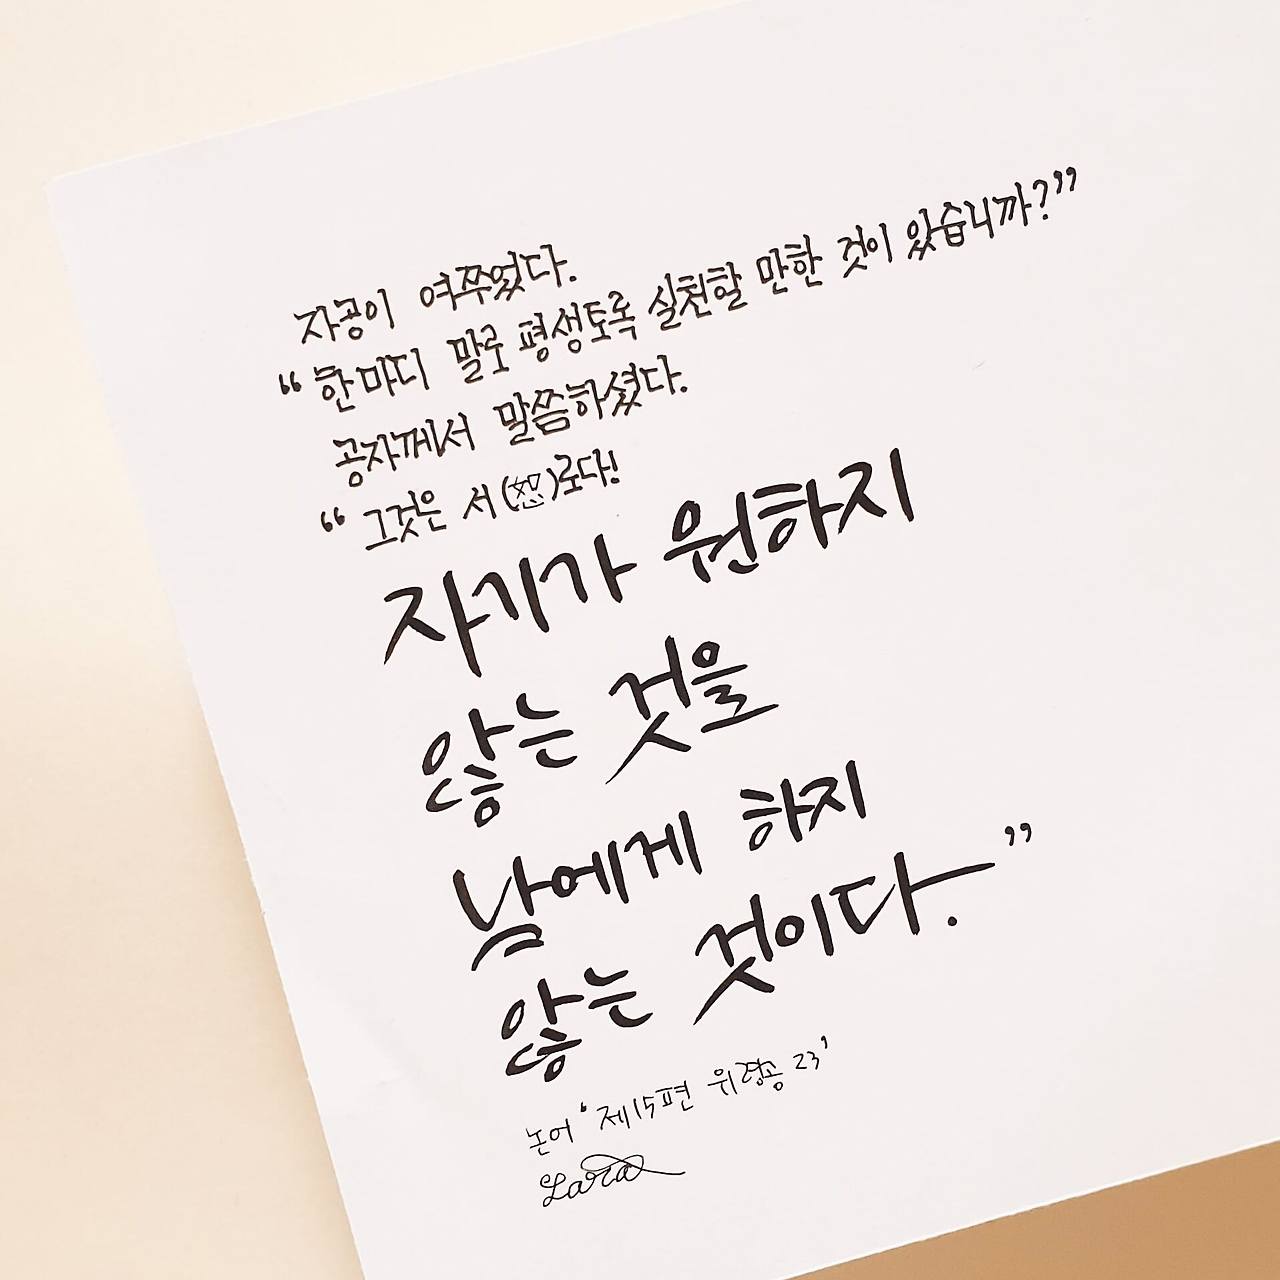 자공이 여쭈었다.
“한마디 말로 평생토록 실천할 만한 것이 있습니까?”
공자께서 말씀하셨다.
“그것은 서(恕)로다!
자기가 원하지
않는 것을
남에게 하지
않는 것이다.”
논어 ‘제15편 위령공 23’
Lara